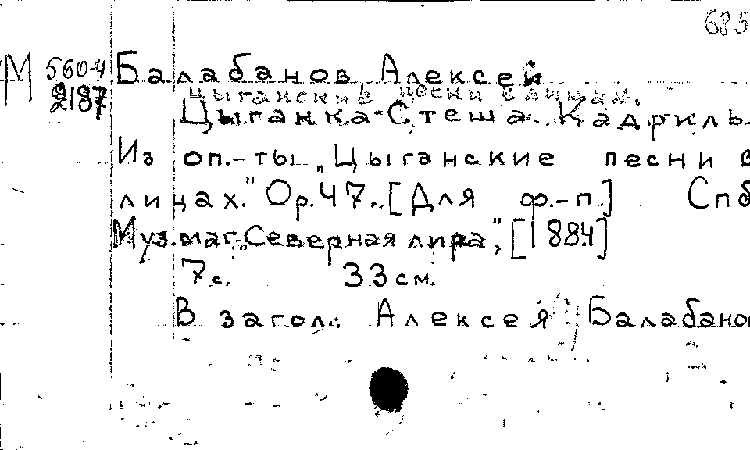 685
М 560-4 Балабанов Алексей
2187 Цыганские песни в лицах.
Цыганка-Стеша. Кадриль
Из оп.-ты „Цыганские песни в
лицах." Op. 47. [Для ф.-п.] Спб
Муз.маг. „Северная лира", [1884]
7 с. 33 см.
В загол.: Алексей Балабано